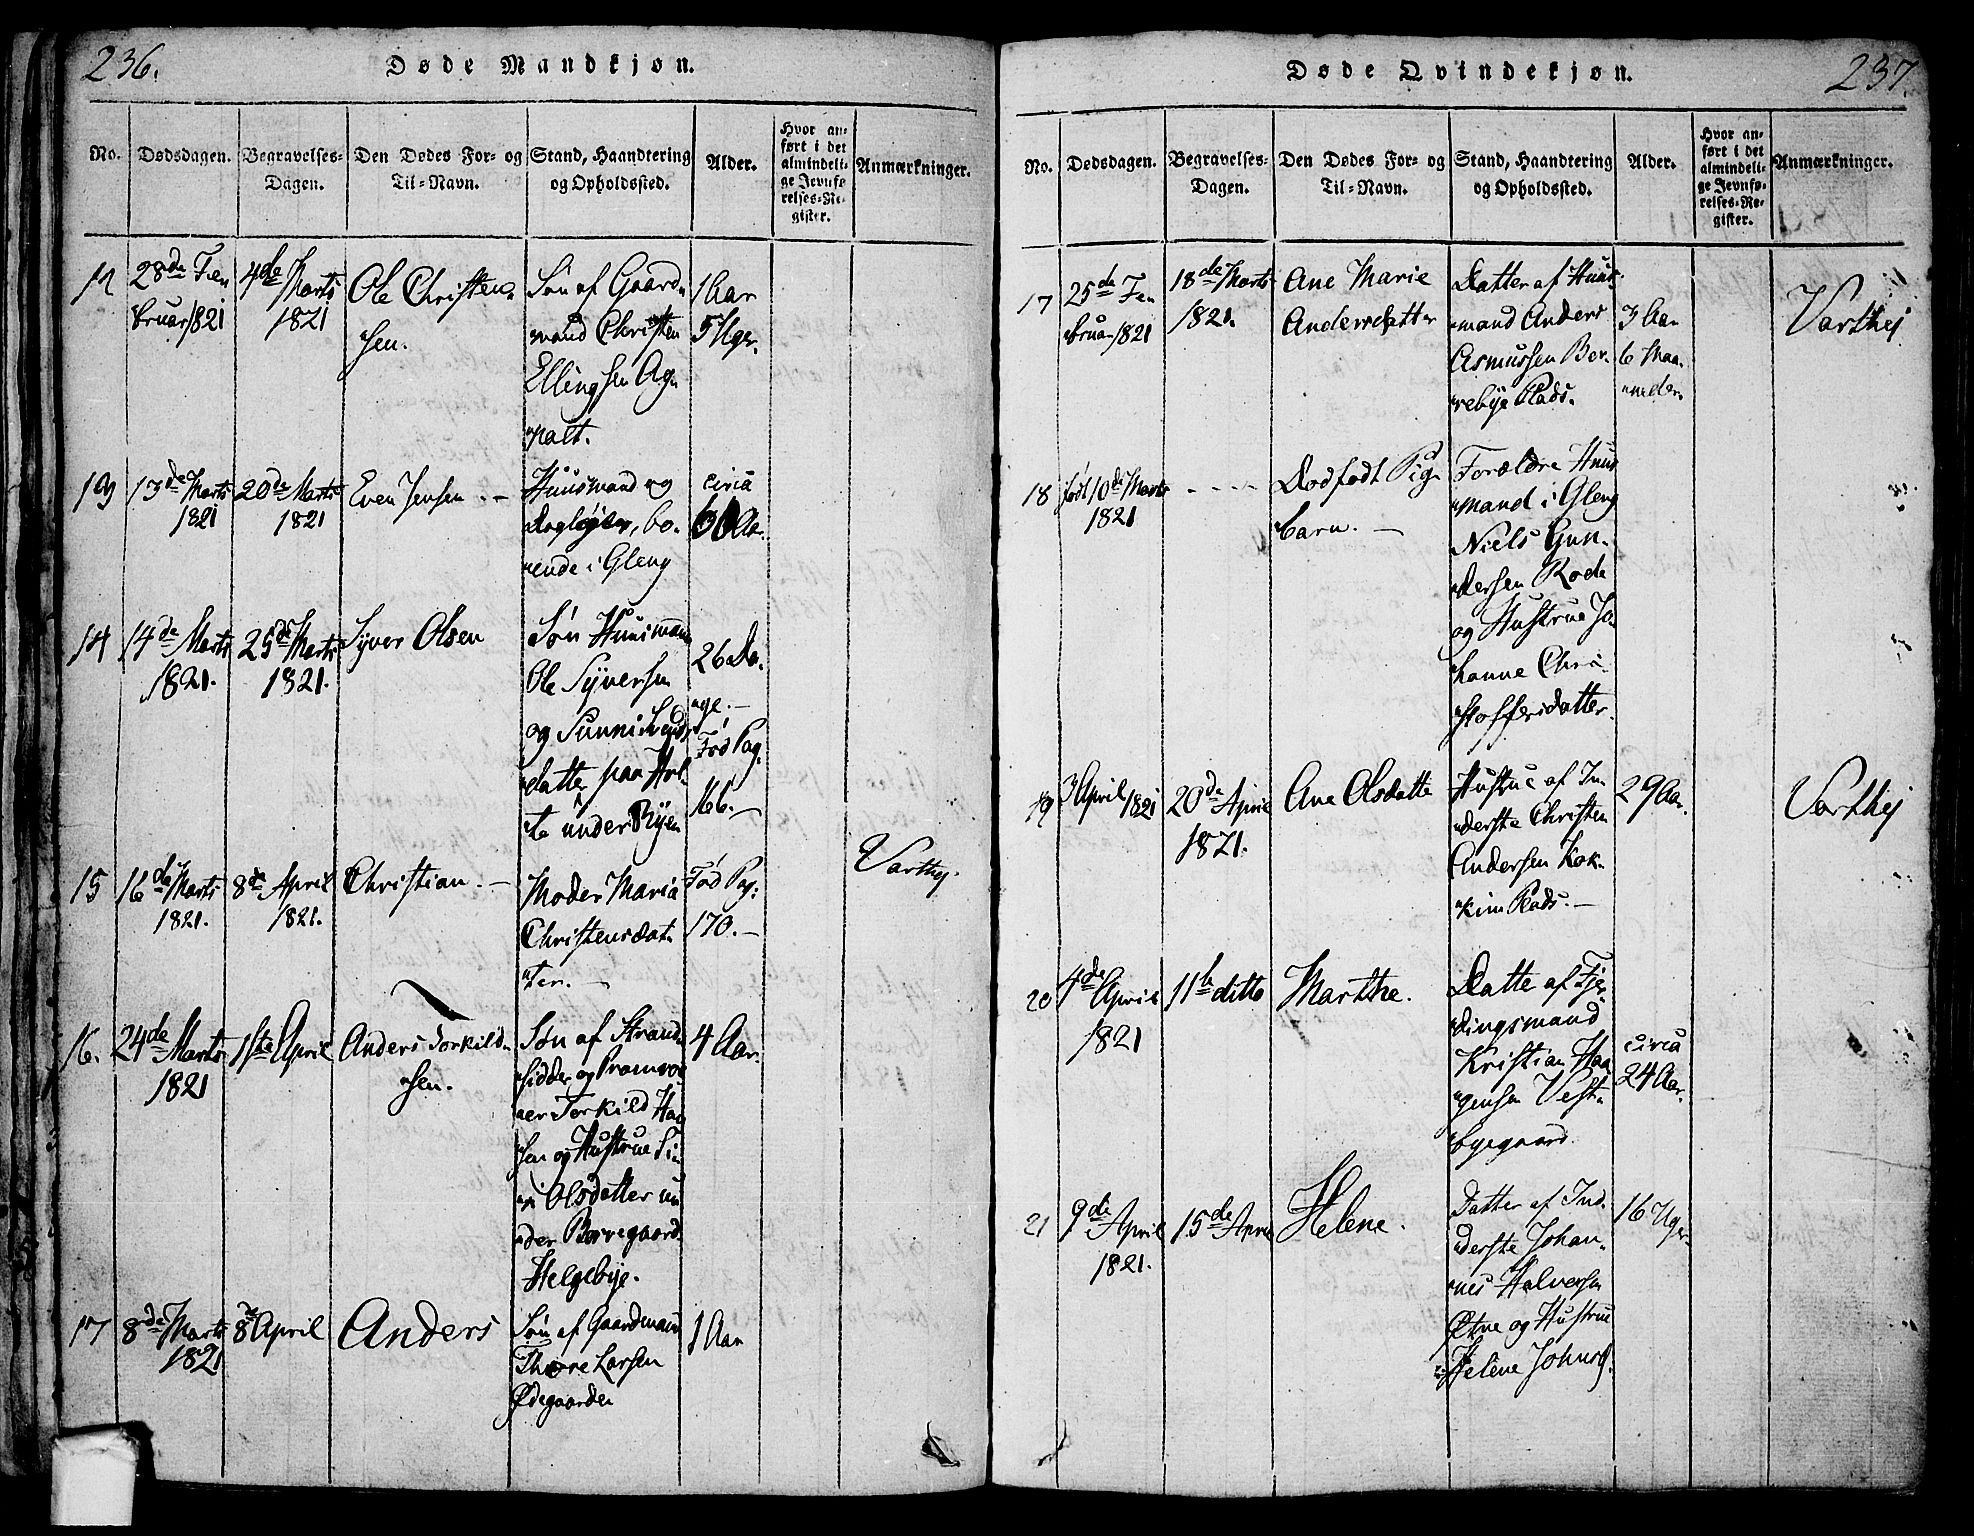 236.
Døde Mandkjøn.
No.
Dødsdagen.
Begravelses-
Dagen.
Den Dødes For- og
Til-Navn.
Stand, Haandtering
og Opholdssted.
Alder.
Hvor an-
ført i det
almindeli-
ge Jevnfø-
relses-Re-
gister.
Anmærkninger.
12
28de Fe„
bruar 1821
4de Marts
1821
Ole Christen„
sen.
Søn af Gaard„
mand Christen
Ellingsen Ag„
palt.
1 Aar
5 Uger.
13
13de Marts
1821
20de Marts
1821
Even Jensen. –
Huusmand og
Dagleier, bo„
ende i Gleng
circa
60 Aar.
14
14de Marts
1821.
25de Marts
1821.
Syver Olsen
Søn Huusmand
Ole Syversen
og
datter paa
te under Byen
26 Da„
ge. –
Fød Pag.
166. –
15
16de Marts
1821.
8de April
1821.
Christian. –
Moder Maria
Christensdat„
ter. –
Fød Pag:
170. –
Varthej.
16.
24de Marts
1821
1ste April
Anders Torkild„
sen.
Søn af Strand„
sidder og
Torkild Han„
sen og Hustrue Si„
ri Olsdatter un„
der Borregaard
Helgebye.
4 Aar.
17
8de Marts
1821
8de April
Anders
Søn af Gaardmand
Thore Larsen
Ødegaarden
1 Aar
Døde Qvindekjøn.
237.
No.
Dødsdagen.
Begravelses-
Dagen.
Den Dødes For- og
Til-Navn.
Stand, Haandtering
og Opholdssted.
Alder.
Hvor an-
ført i det
almindeli-
ge Jevnfø-
relses-Re-
gister.
Anmærkninger.
17
25de Fe„
bruar 1821
18de Marts
1821.
Ane Marie
Andersdatter
Datter af Huus„
mand Anders
Asmussen Bor„
rebye Plads.
3 Aar
6 Maa„
neder.
Varthej
18
født 10de Marts
1821
- - - -
Dødfødt Pige„
barn. –
Forældre Huus„
mand i Gleng
Niels Gun„
dersen Rode
og Hustrue Jo„
hanne Chri„
stoffersdatter.
19
3 April 1821
20de April
1821.
Ane Olsdatter
Hustrue af In„
derste Christen
Andersen Kok„
kim Plads. –
29 Aar.
Varthej
20
4de April
1821
11te ditto
Marthe.
Datter af Fjer„
dingsmand
Kristian Haa„
gensen Vest„
byegaard.
circa
24 Aar.
21
9de April
1821.
15de April
Helene.
Datter af Ind„
derste Johan„
nes Halversen
Østne og Hustrue
Helene Johnsd.
16 Uger